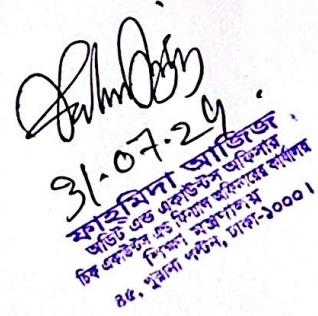 31.07.24
ফাহমিদা আজিজ
অডিট এন্ড একাউন্টস অফিসার
চিফ একাউন্টস এন্ড ফিন্যান্স অফিসারের কার্যালয়
শিক্ষা মন্ত্রণালয়
৪৫, পুরানা পল্টন, ঢাকা-১০০০।